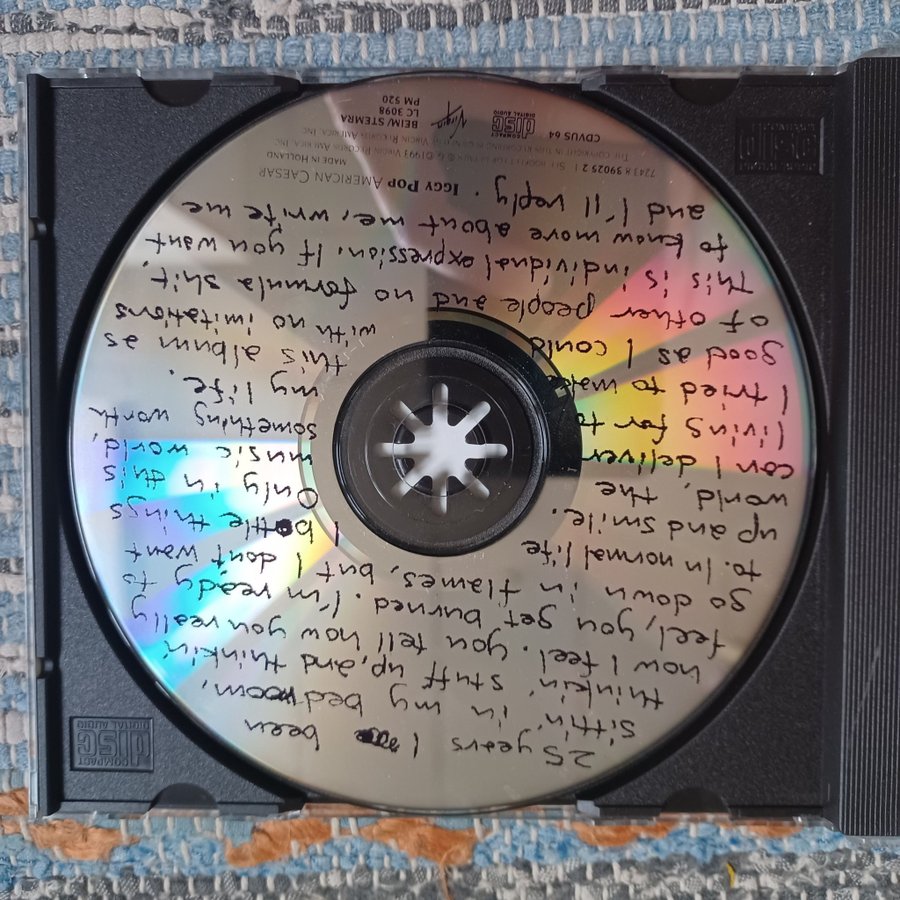 25 years I been
sittin' in my bedroom,
thinkin' stuff up, and thinkin'
how I feel. you tell how you really
feel, you get burned. I'm ready to
go down in flames, but, I don't want
to. In normal life I bottle things
up and smile. Only in this
world, the music world,
can I deliver something worth
living for to my life.
I tried to make this album as
good as I could with no imitations
of other people and no formula shit.
This is individual expression. If you want
to know more about me, write me
and I'll reply.
IGGY POP AMERICAN CAESAR
MADE IN HOLLAND
7243 8 39025 2 1 ℗ & © 1993 VIRGIN RECORDS AMERICA, INC.
THE COPYRIGHT IN THIS RECORDING IS OWNED BY VIRGIN RECORDS AMERICA, INC.
CDVUS 64
COMPACT
disc
DIGITAL AUDIO
Virgin
BEIM/ STEMRA
LC 3098
PM 520
COMPACT
disc
DIGITAL AUDIO